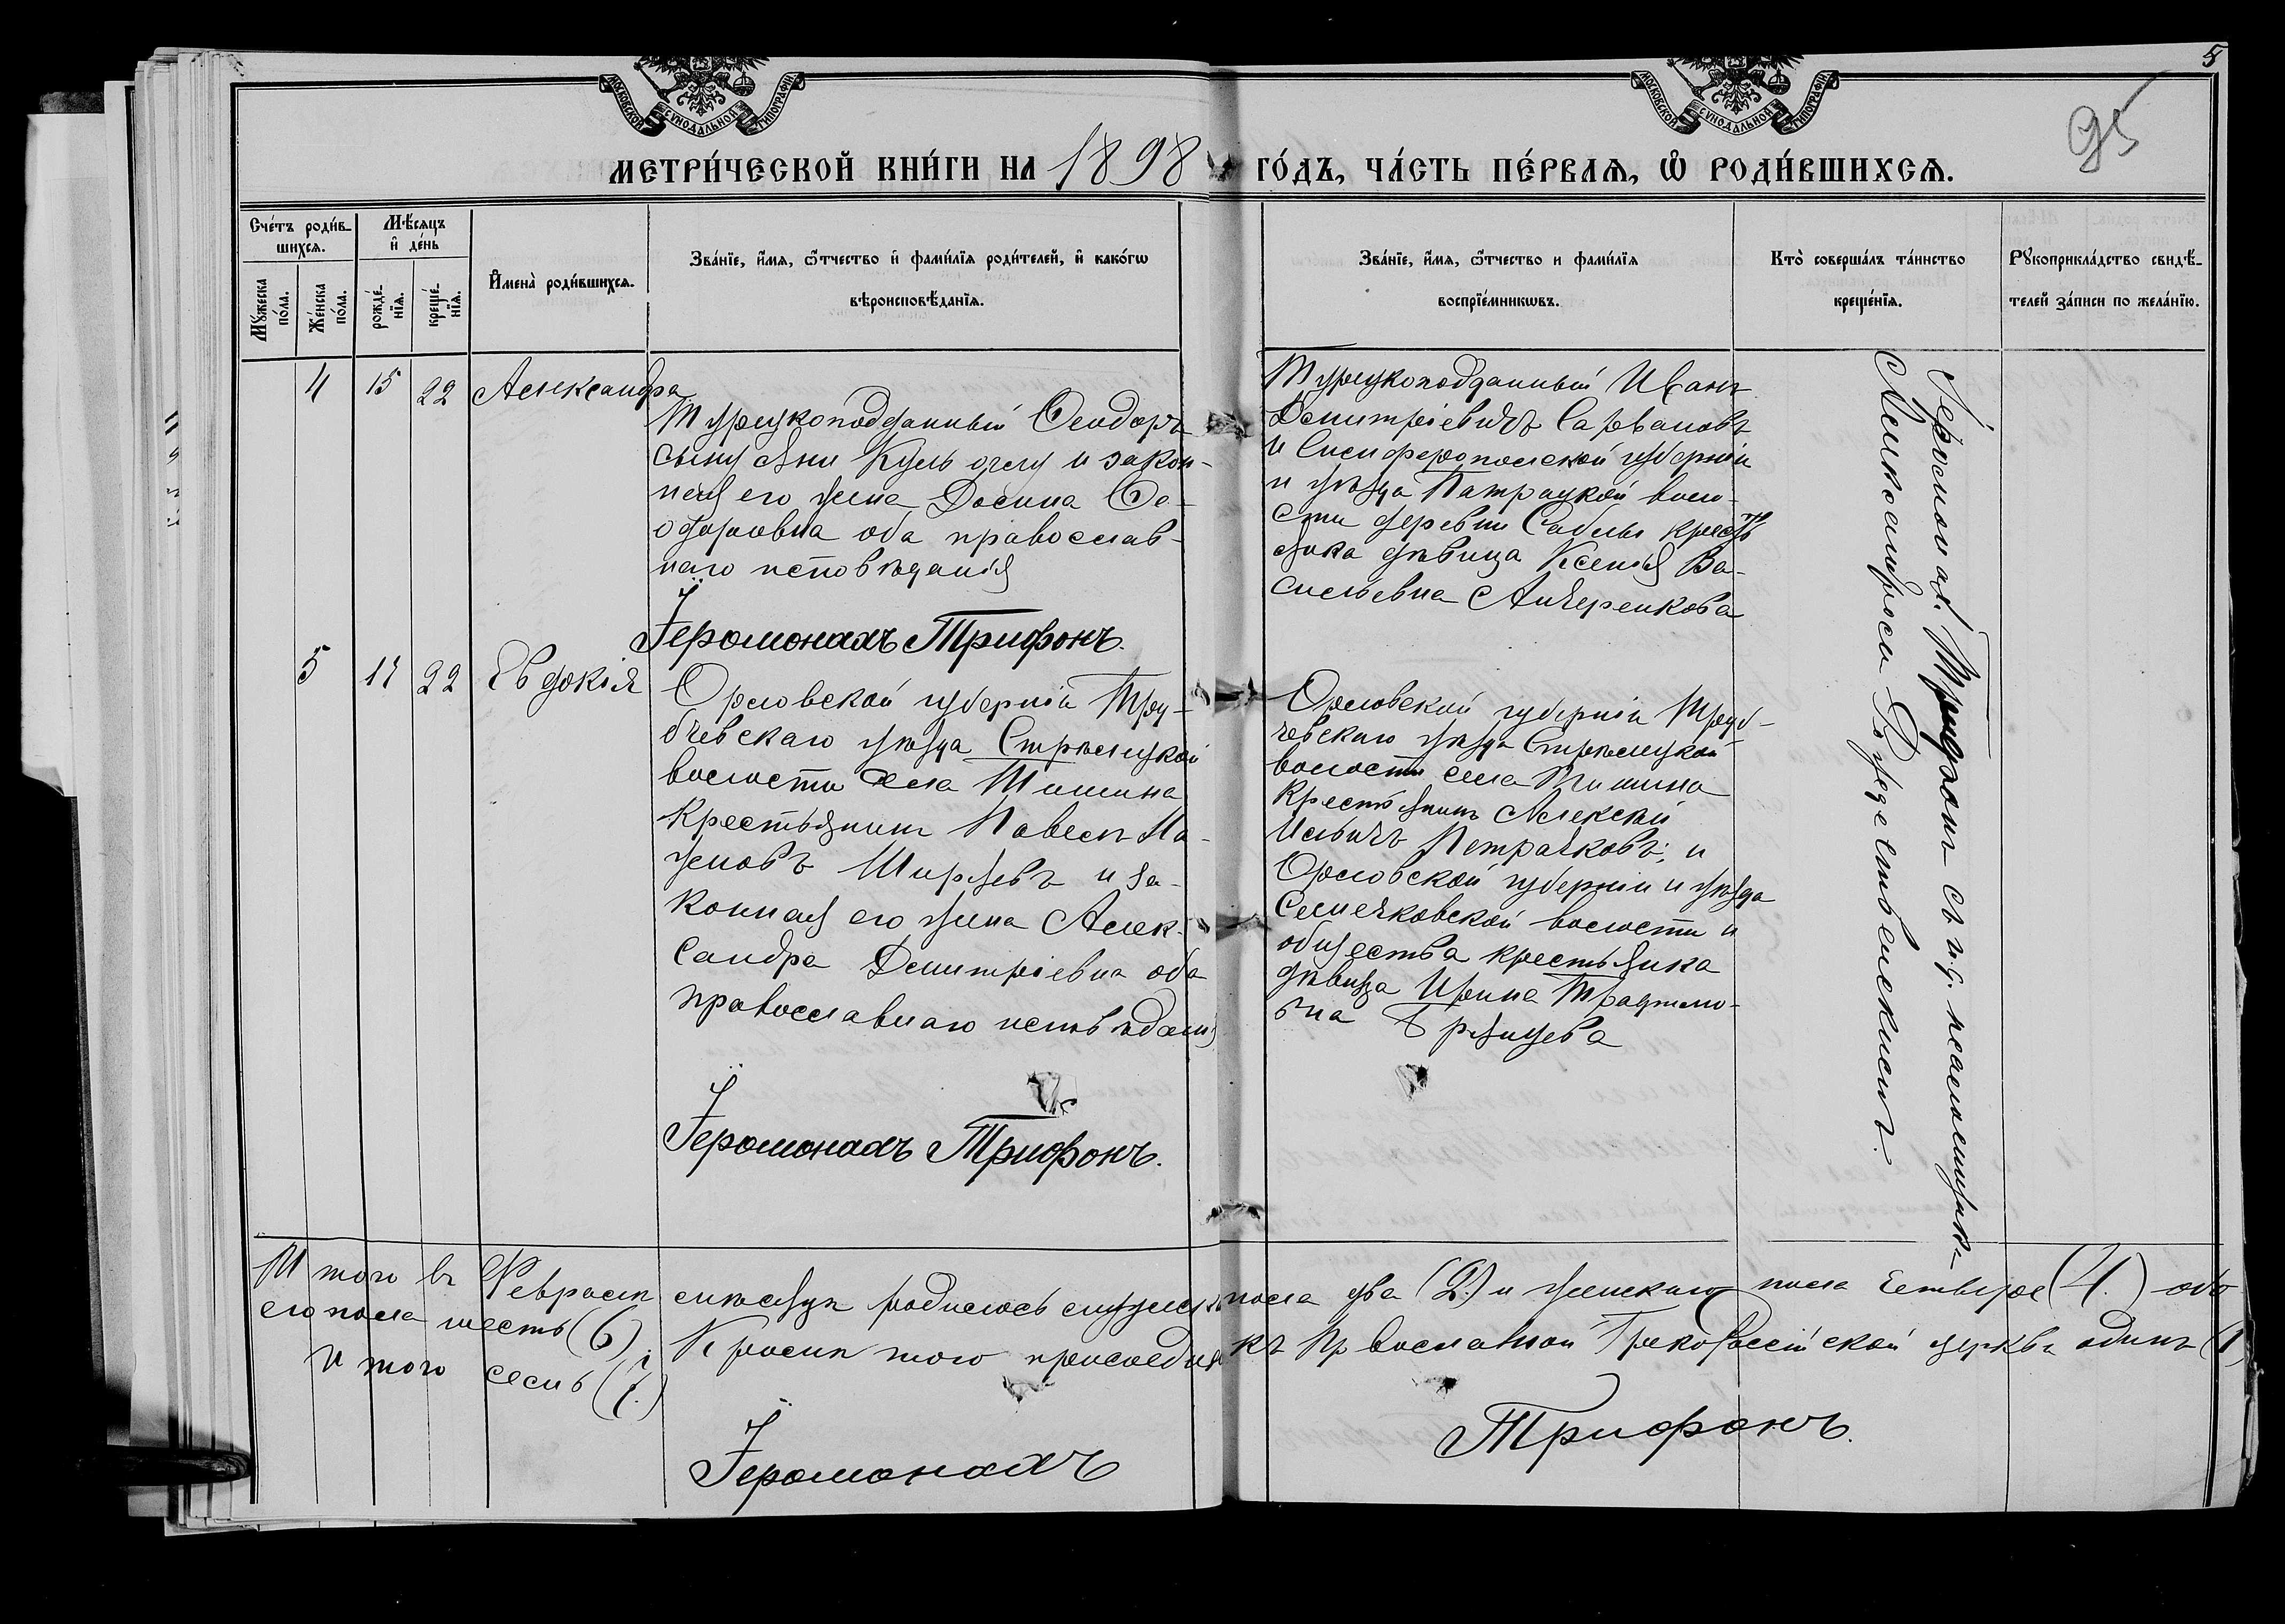 5
95
МОСКОВСКОЙ СУНОДАЛЬНОЙ ТИПОГРАФІИ
МОСКОВСКОЙ СУНОДАЛЬНОЙ ТИПОГРАФІИ
МЕТРИ́ЧЕСКОЙ КНИ́ГИ НА 1898 ГО́ДЪ, ЧА́СТЬ ПЕ́РВАѦ, Ѡ РОДИ́ВШИХСѦ.
Сче́тъ роди́в-
шихся.
Мꙋ́жеска
по́ла.
Же́нска
по́ла.
Мѣ́сяцъ
и де́нь
рожде́-
нїя.
креще́-
нїя.
Имена̀ роди́вшихся.
Зва́нїе, и́мя, ѻ҆́тчество и фами́лїя роди́телей, и како́гѡ
вѣроисповѣ́данїя.
Зва́нїе, и́мя, ѻ҆́тчество и фами́лїя
воспрїе́мникѡвъ.
Кто̀ соверша́лъ та́инство
креще́нїя.
Рꙋкоприкла́дство свидѣ́-
телей за́писи по жела́нїю.
4 15 22 Александра
Турецкоподданный Ѳеодоръ
сынъ Яни и закон-
ная его жена Ѳе-
одоровна оба православ-
наго исповѣданія
Іеромонахъ Трифонъ.
Турецкоподданный Иванъ
Димитріевичъ Сарвановъ
и Симферопольской губерніи
и уѣзда воло-
сти деревни Саблы кресть
янка дѣвица Ксенія Ва-
сильевна
Іеромонах. Трифонъ съ и. д. псаломщика
5 11 22 Евдокія
Орловской губерніи Тру-
бчевскаго уѣзда Стрѣлецкой
волости села Тишина
крестьянинъ Павелъ На-
умовъ Ширяевъ и за-
конная его жена Алек-
сандра Димитріевна оба
православнаго исповѣданія
Іеромонахъ Трифонъ.
Орловской губерніи Труб-
чевскаго уѣзда Стрѣлецкой
волости села Тишина
крестьянинъ Алексѣй
Ильичъ Петрачковъ; и
Орловской губерніи и уѣзда
волости и
общества крестьянка
дѣвица Ирина
вна
Итого въ Февралѣ мѣсяцѣ родилось мужеск пола два (2.) и женскаго пола четверо (4.) обо
его пола шесть (6); Кромѣ того присоедин къ Православной Грекороссійской церкви одинъ (1)
Итого семь (7.)
Іеромонахъ Трифонъ.